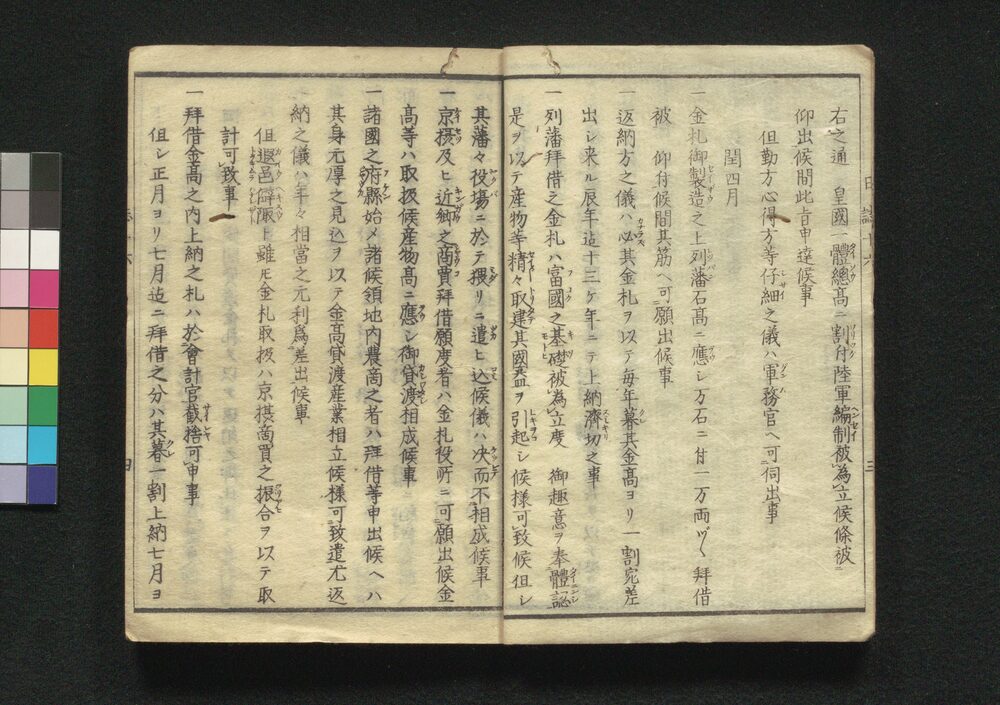 右之通　皇國一體總髙ニ割付陸軍編制被爲立候條被
仰出候間此旨申達候事
但勤方心得方等仔細之儀ハ軍務官ヘ可伺出事
閏四月
一金札御製造之上列藩石髙ニ應シ万石ニ廿一万両ヅヽ拜借
被　仰付候間其筋ヘ可願出候事
一返納方之儀ハ必其金札ヲ以テ毎年暮其金髙ヨリ一割宛差
出シ来ル辰年迄十三ケ年ニテ上納濟切之事
一列藩拜借之金札ハ富國之基礎被爲立度　御趣意ヲ奉體認
是ヲ以テ産物等精々取建其國益ヲ引起シ候樣可致候但シ
其藩々役塲ニ於テ猥リニ遣ヒ込候儀ハ决而不相成候事
一京摂及ヒ近郷之商賈拜借願度者ハ金札役所ニ可願出候金
髙等ハ取扱候産物髙ニ應シ御貸渡相成候事
一諸國之府縣始メ諸候領地内農商之者ハ拜借等申出候ヘハ
其身元厚之見込ヲ以テ金髙貸渡産業相立候樣可致遣尤返
納之儀ハ年々相當之元利爲差出候事
但遐邑僻陬ト雖モ金札取扱ハ京摂商賈之振合ヲ以テ取
計可致事
一拜借金髙之内上納之札ハ於會計官截捨可申事
但シ正月ヨリ七月迄ニ拜借之分ハ其暮一割上納七月ヨ